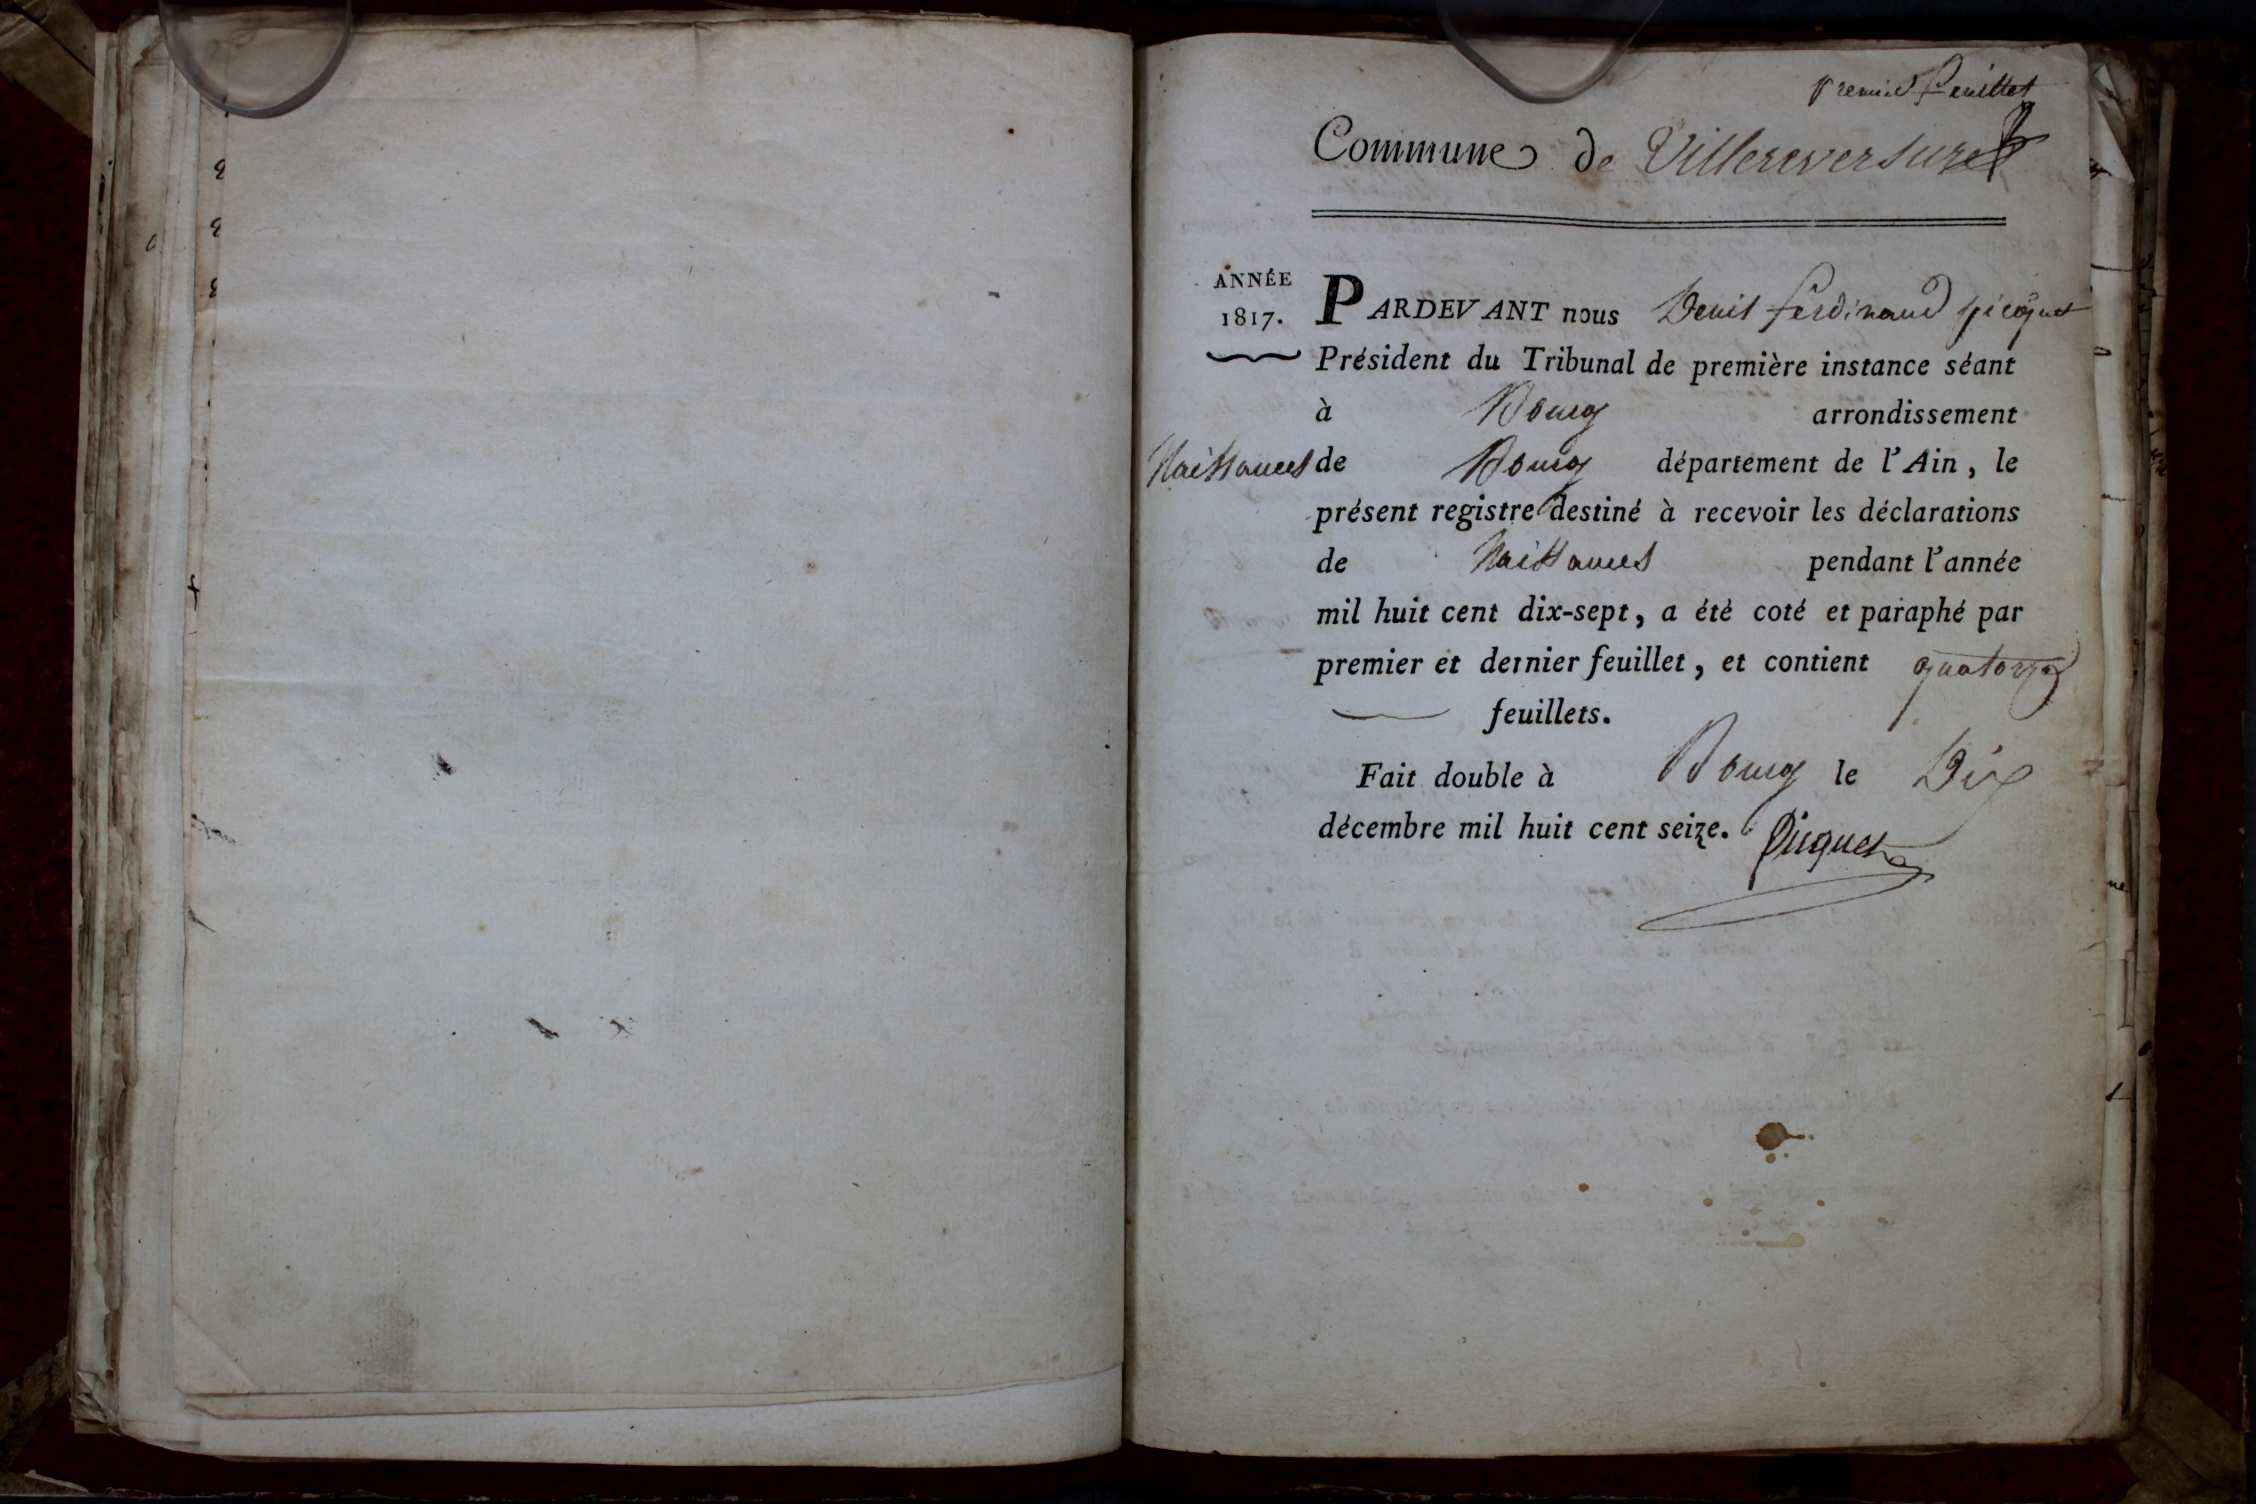 premier feuillet
Commune de Villereversure
ANNÉE
1817.
PARDEVANT nous Denis ferdinand picquet
Président du Tribunal de première instance séant
à Bourg arrondissement
Naissances
de Bourg département de l'Ain, le
présent registre destiné à recevoir les déclarations
de Naissances pendant l'année
mil huit cent dix-sept, a été coté et paraphé par
premier et dernier feuillet, et contient quatorze
feuillets.
Fait double à Bourg le Dix
décembre mil huit cent seize.
Picquet